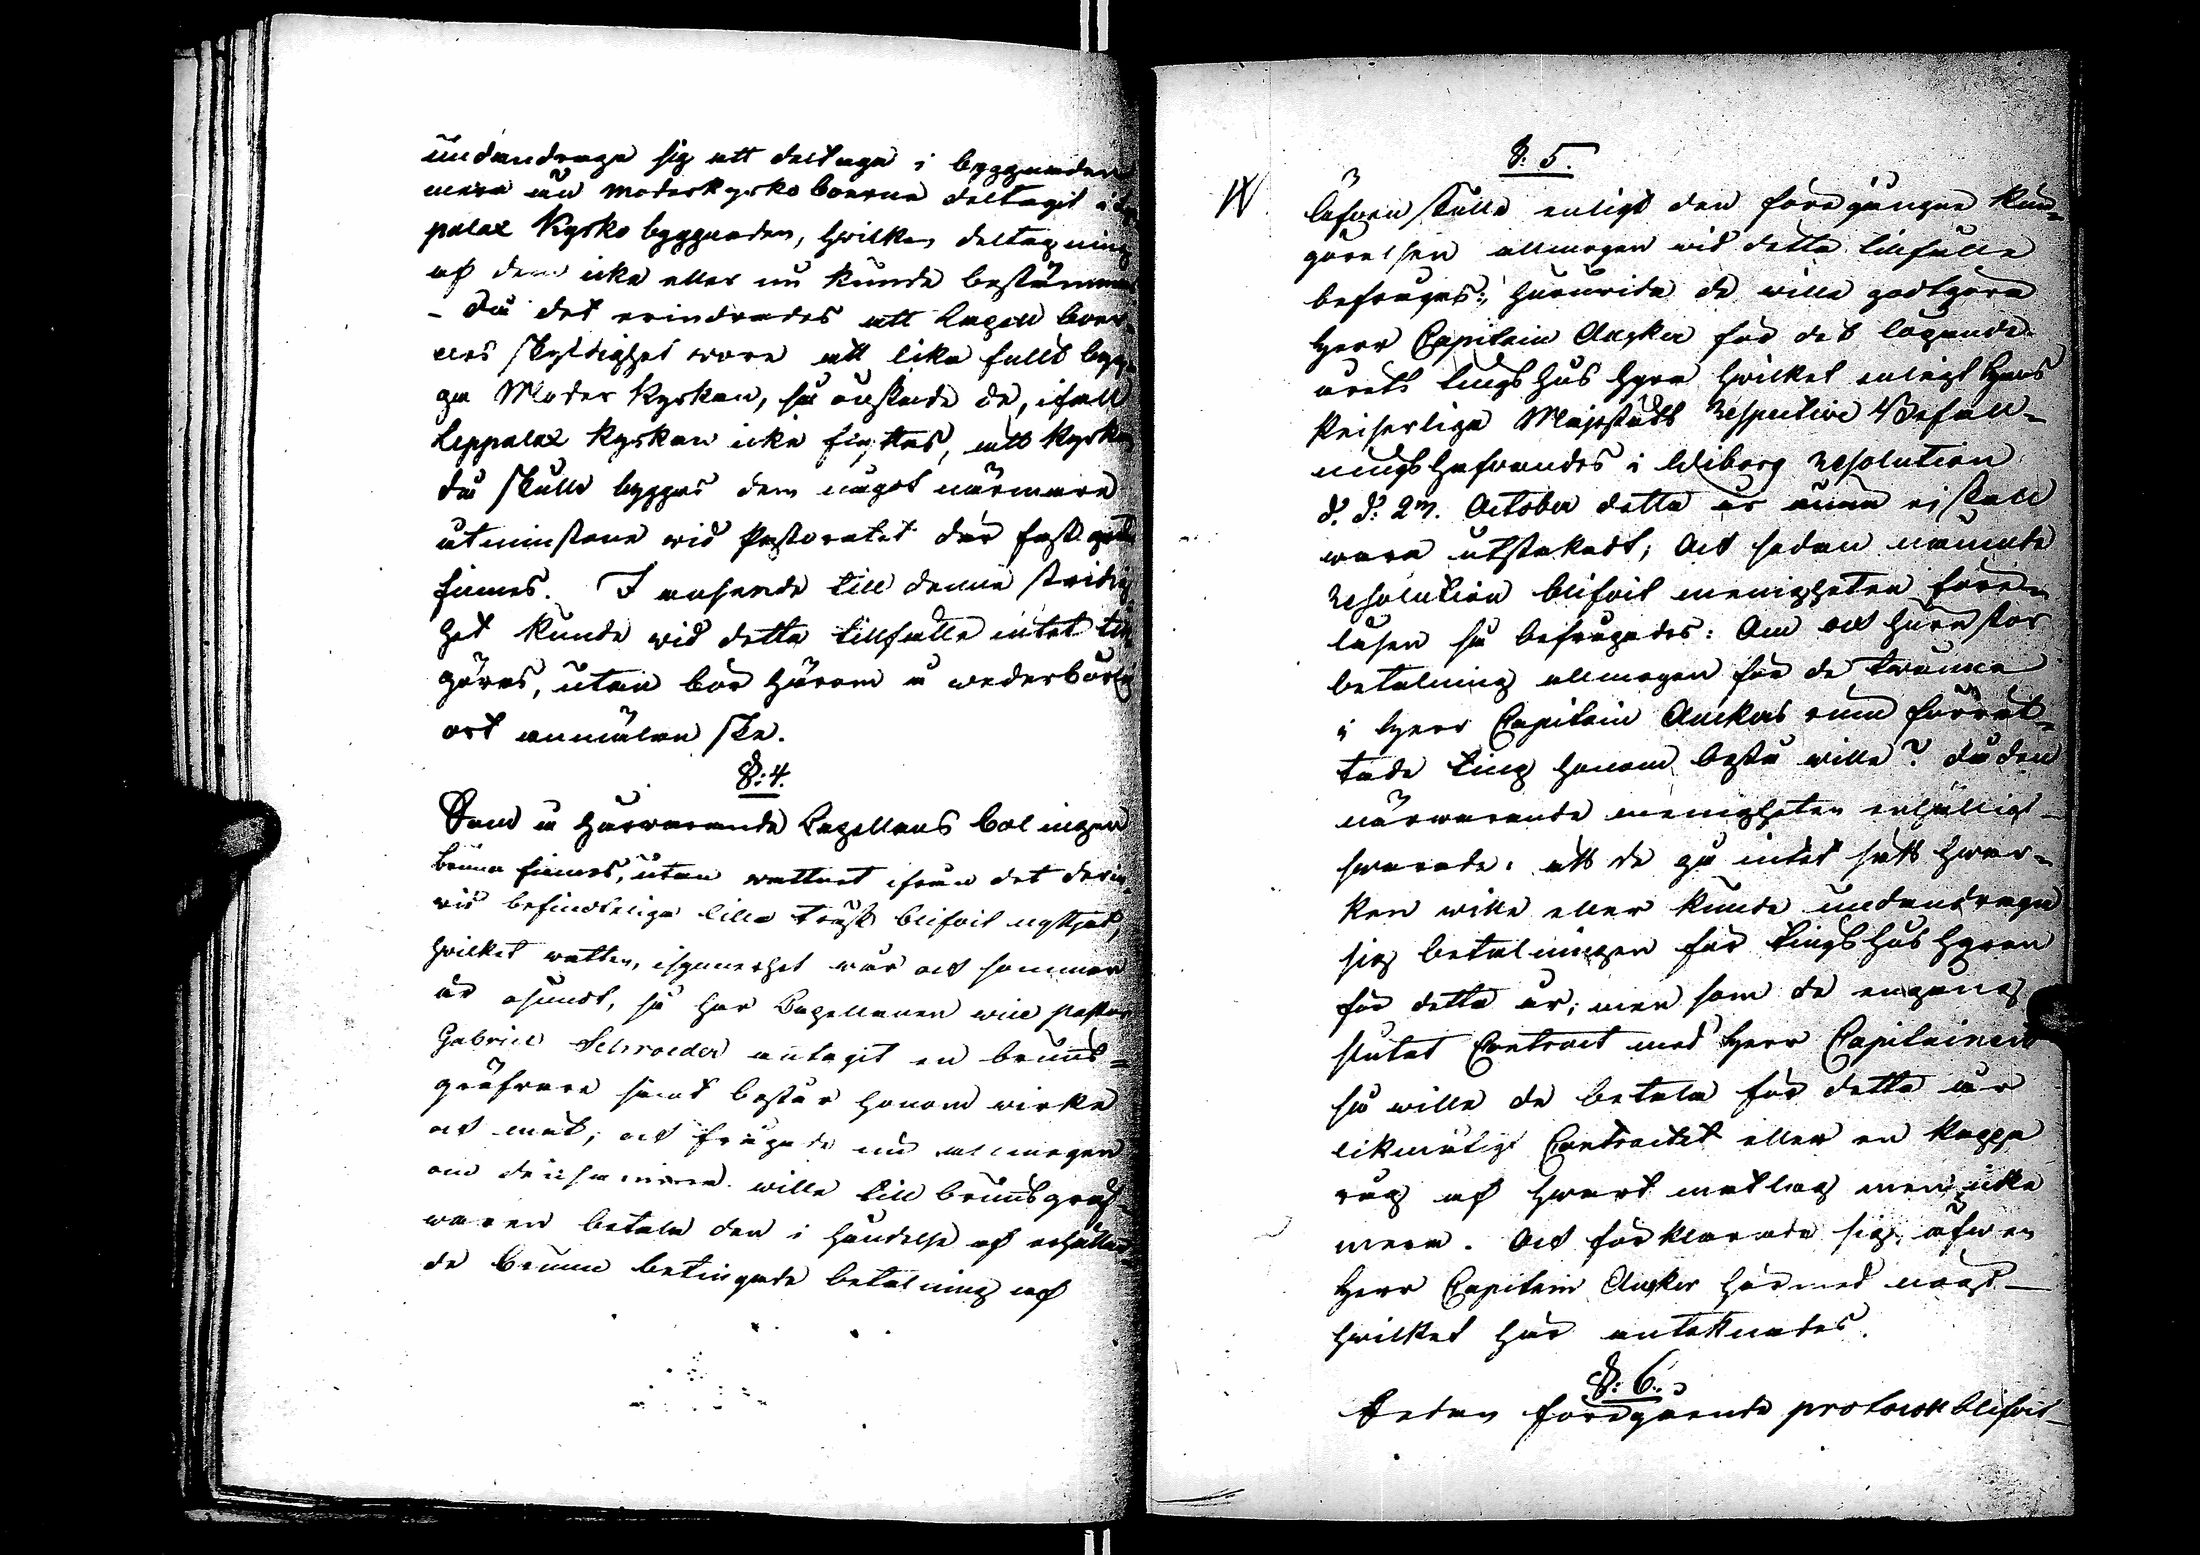 undandraga sig att deltaga i byggnaden
mera än moderkyrko boerne deltagit i Lep
palax Kyrko byggnaden, hwilken deltagning
af dem icke eller nu kunde bestämmas
- Då det erindrades att Capell boer-
nes skyldighet wore att lika fullt byg-
ga Moder Kyrkan, så önskade de, ifall
Leppalax Kyrkan icke flyttas, att Kyrkan
då skulle byggas dem något närmare
utminstone wid Pastoratet der fast
finnes. I anseende till denna stridig
het kunde wid detta tillfälle intet till
göras, utan bör härom å wederbörlig
ort anmälan ske.
§: 4.
Som å härwarande Capellans bol ingen
brunn finnes, utan wattnet ifrån det derin-
wid befindteliga lilla träsk blifvit nyttjat,
hwilket watten, isynnerhet wår och sommar
är osundt, så har Capellanen will pastor
Gabriel Schroeder antagit en brunns=
gräfware samt består honom wirke
och mat; och frågade nu allmogen
om de wille till brunnsgräf-
waren betala den i händelse af erhållan-
de brunn betingade betalning af
§: 5.
Äfwen skulle enligt den föregångne kun-
görelsen allmogen wid detta tillfälle
befrågas: huruvida de wille godtgöra
Herr Capitain Ancker för det löpande
årets tings hus hyra hwilket enligt Hans
Keiserliga Majestäts respective Befall-
ningshafwandes i Wiborg resolution
d. d: 27. October detta år ännu ej skall
wara utstakadt; Och sedan nämnde
resolution blifvit menigheten före-
läsen så befrågades: Om och huru stor
betalning allmogen för de twänne
i Herr Capitain Anckers rum förrät-
tade ting honom bestå wille? då den
närwarande menigheten enhälligt
swarade: att de på intet sätt hwar-
ken wille eller kunde undandraga
sig betalningen för tings hus hyran
för detta år; men som de engång
slutat Contract med Herr Capitainen
så wille de betala för detta år
likmätigt Contractet eller en kappa
råg af hwart matlag men icke
mera. Och förklarade sig äfwen
Herr Capitain Ancker härmed nögd
hwilket här antecknades.
§: 6.
Sedan föregående protocoll blifvit